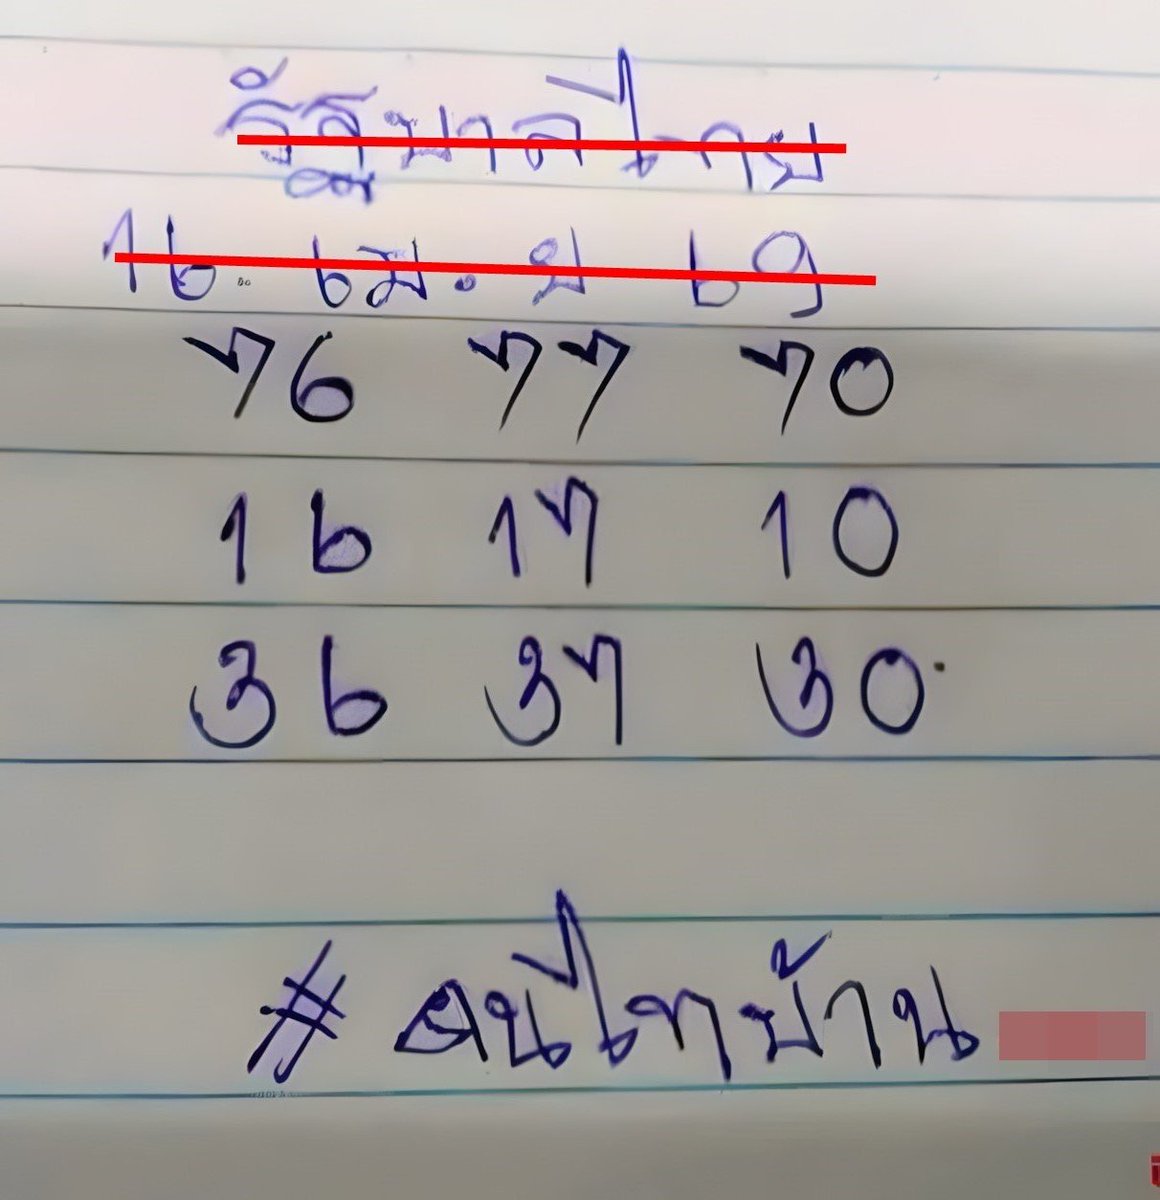 รัฐบาลไทย
16. เม.ย 69
76 77 70
16 17 10
36 37 30
#คนไทบ้าน